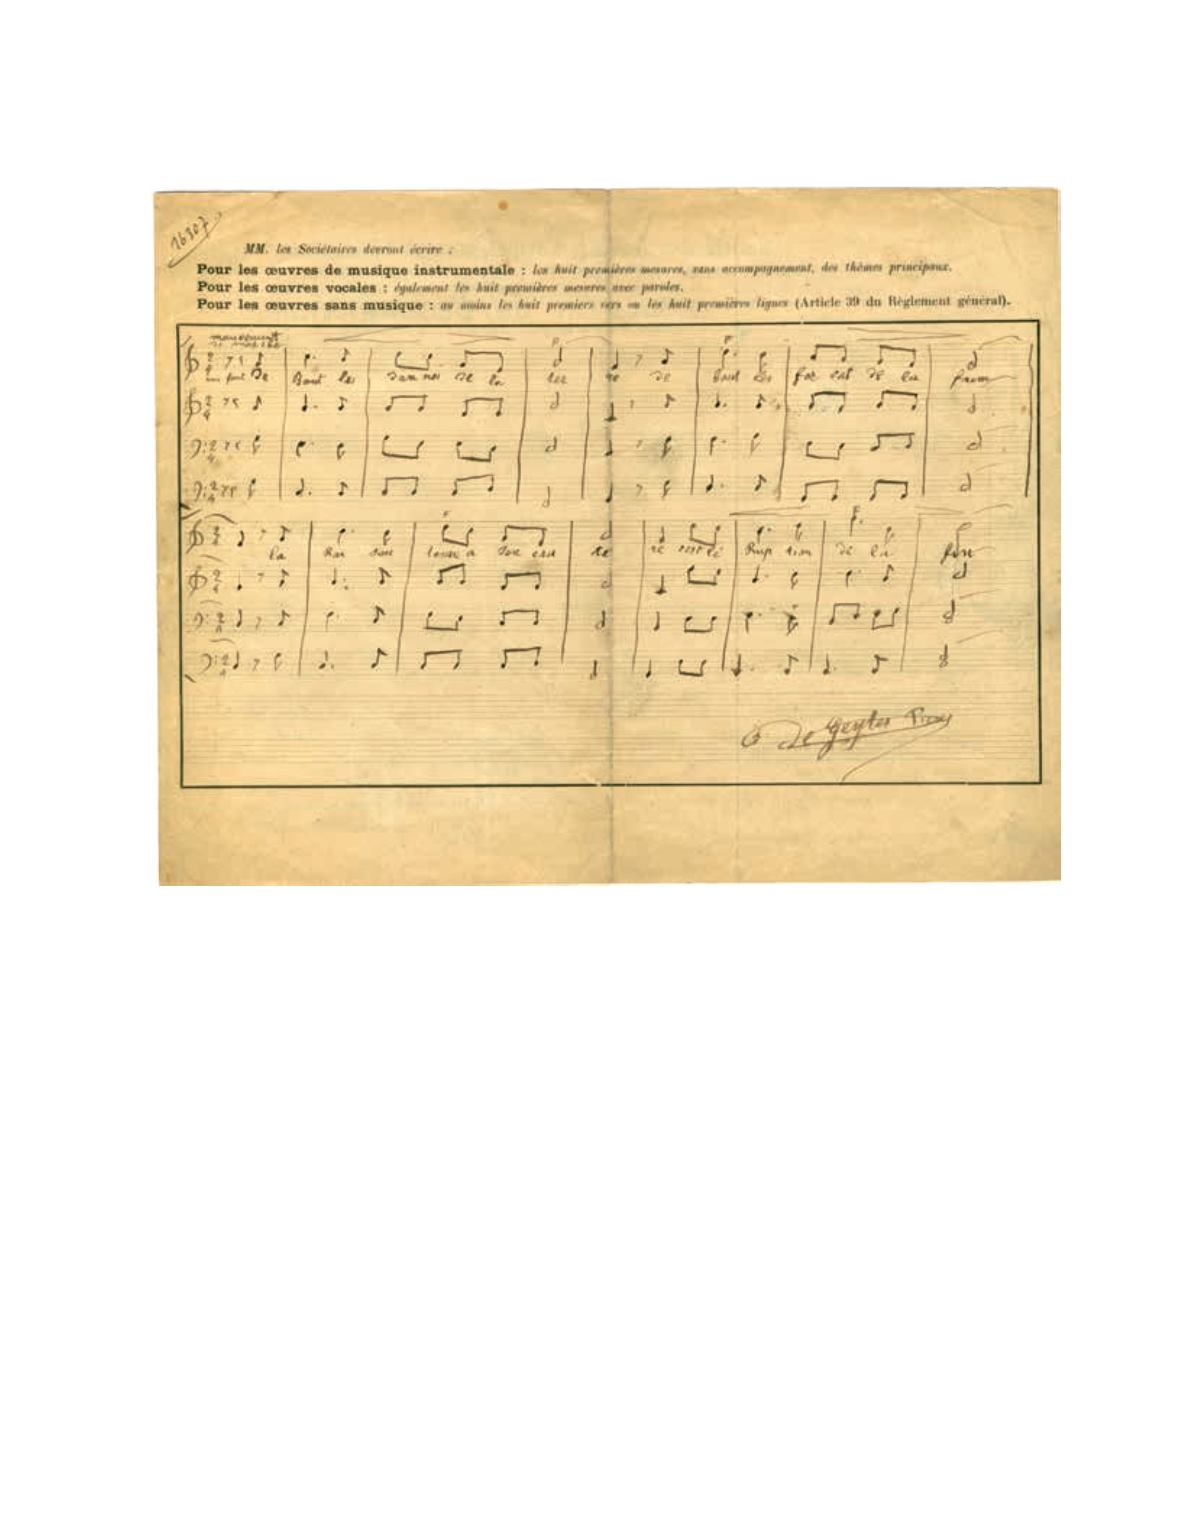 16307
MM. les Sociétaires devront écrire :
Pour les œuvres de musique instrumentale : les huit premières mesures, sans accompagnement, des thèmes principaux.
Pour les œuvres vocales : également les huit premières mesures avec paroles.
Pour les œuvres sans musique : au moins les huit premiers vers ou les huit premières lignes (Article 39 du Règlement général).
mouvement
De Bout les dam nés de la ter re de bout les for çat de la faim
la Rai son tonne en son cra tè re c'est l'é rup tion de la fin
De Geyter Pierre